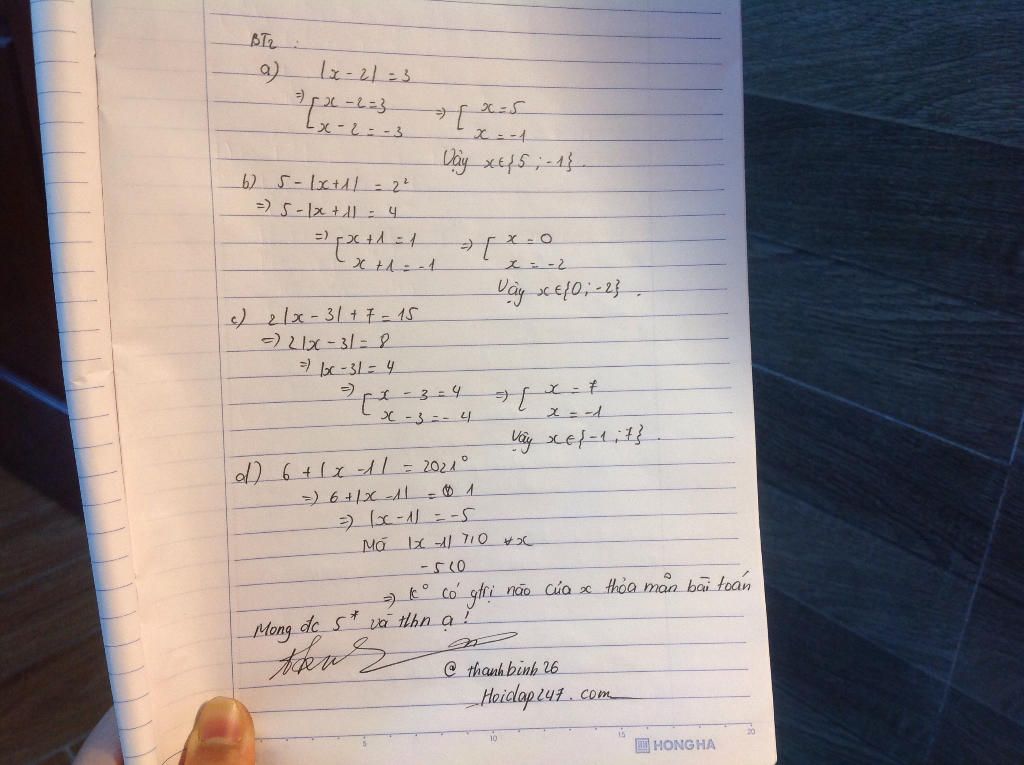 BT2 :
a) |x - 2| = 3
=> [ x - 2 = 3 => [ x = 5
x - 2 = -3 x = -1
Vậy x ∈ {5 ; -1} .
b) 5 - |x + 1| = 2²
=> 5 - |x + 1| = 4
=> [ x + 1 = 1 => [ x = 0
x + 1 = -1 x = -2
Vậy x ∈ {0 ; -2} .
c) 2|x - 3| + 7 = 15
=> 2|x - 3| = 8
=> |x - 3| = 4
=> [ x - 3 = 4 => [ x = 7
x - 3 = -4 x = -1
Vậy x ∈ {-1 ; 7} .
d) 6 + |x - 1| = 2021⁰
=> 6 + |x - 1| = 1
=> |x - 1| = -5
Mà |x - 1| ≥ 0 ∀x
-5 < 0
=> k° có gtrị nào của x thỏa mãn bài toán
Mong đc 5* và tlhn ạ !
@ thanhbinh26
Hoidap247.com
5 10 15 20
HONG HA